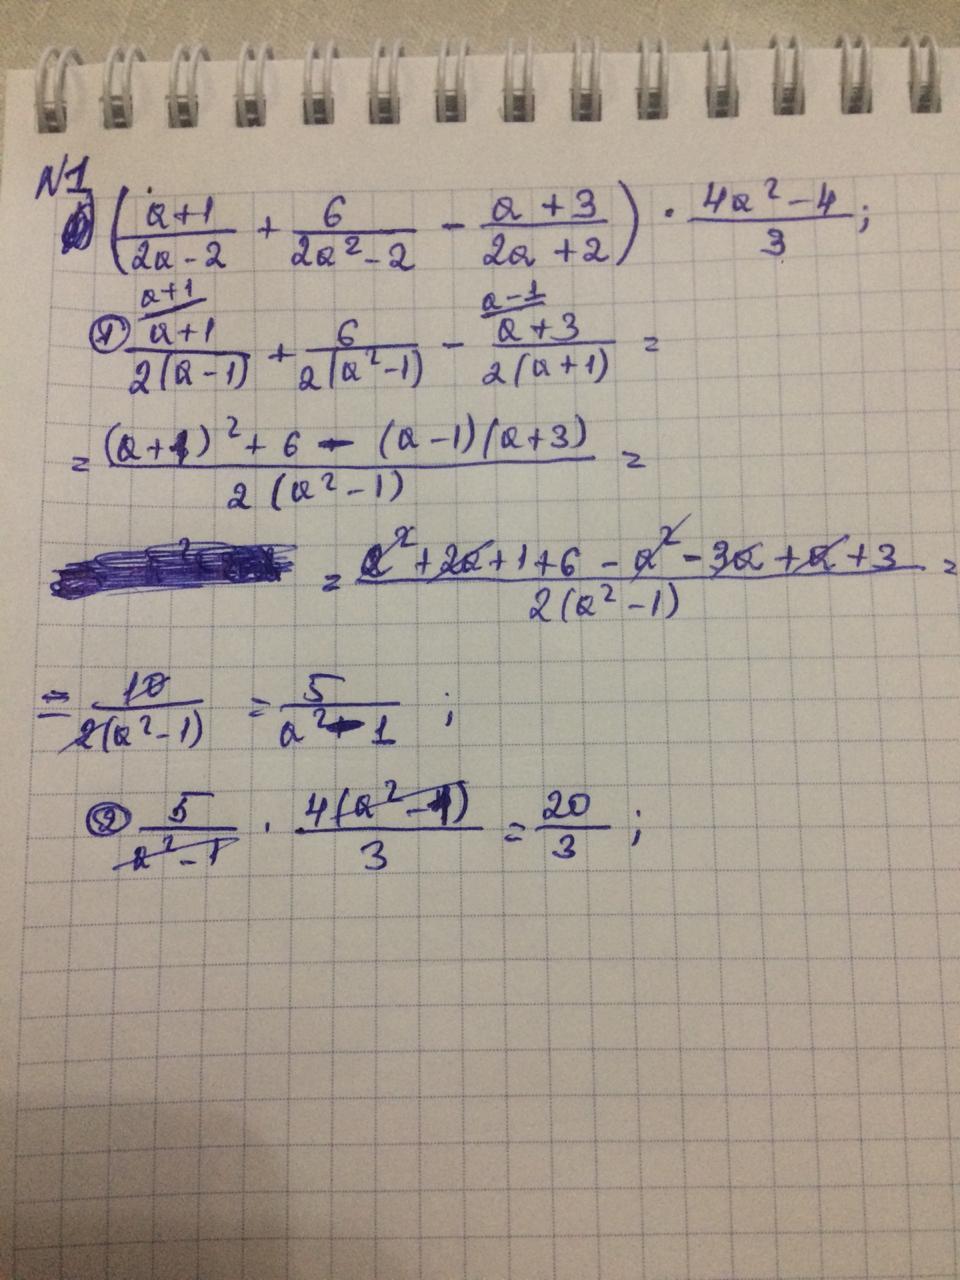 N1
((a+1)/(2a-2) + 6/(2a²-2) - (a+3)/(2a+2)) · (4a²-4)/3;
a+1 a-1
① (a+1)/(2(a-1)) + 6/(2(a²-1)) - (a+3)/(2(a+1)) =
= ((a+1)²+6-(a-1)(a+3))/(2(a²-1)) =
= (a²+2a+1+6-a²-3a+a+3)/(2(a²-1)) =
= 10/(2(a²-1)) = 5/(a²-1) ;
② 5/(a²-1) · 4(a²-1)/3 = 20/3 ;